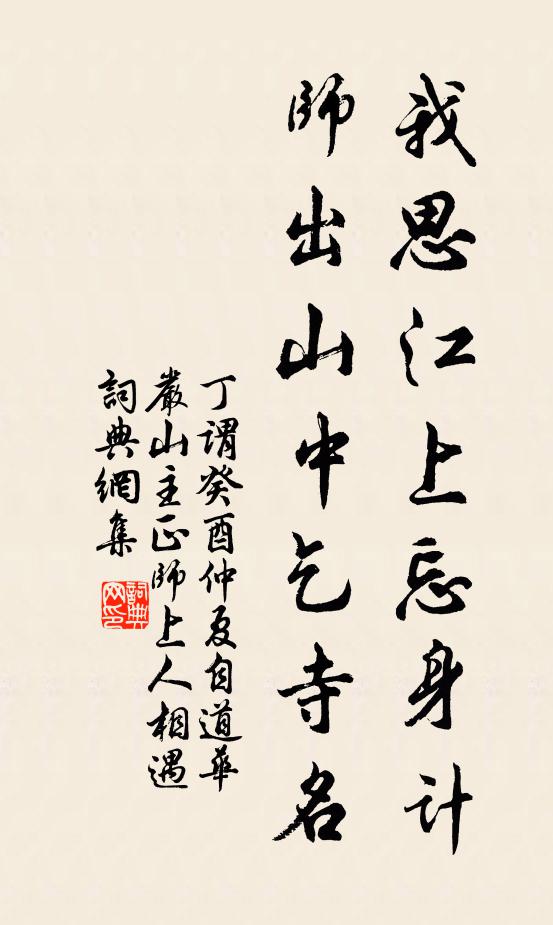 我思江上忘身計
師出山中乞寺名
丁謂癸酉仲夏自道華
嚴山主正師上人相遇
詞典網集
詞典网印